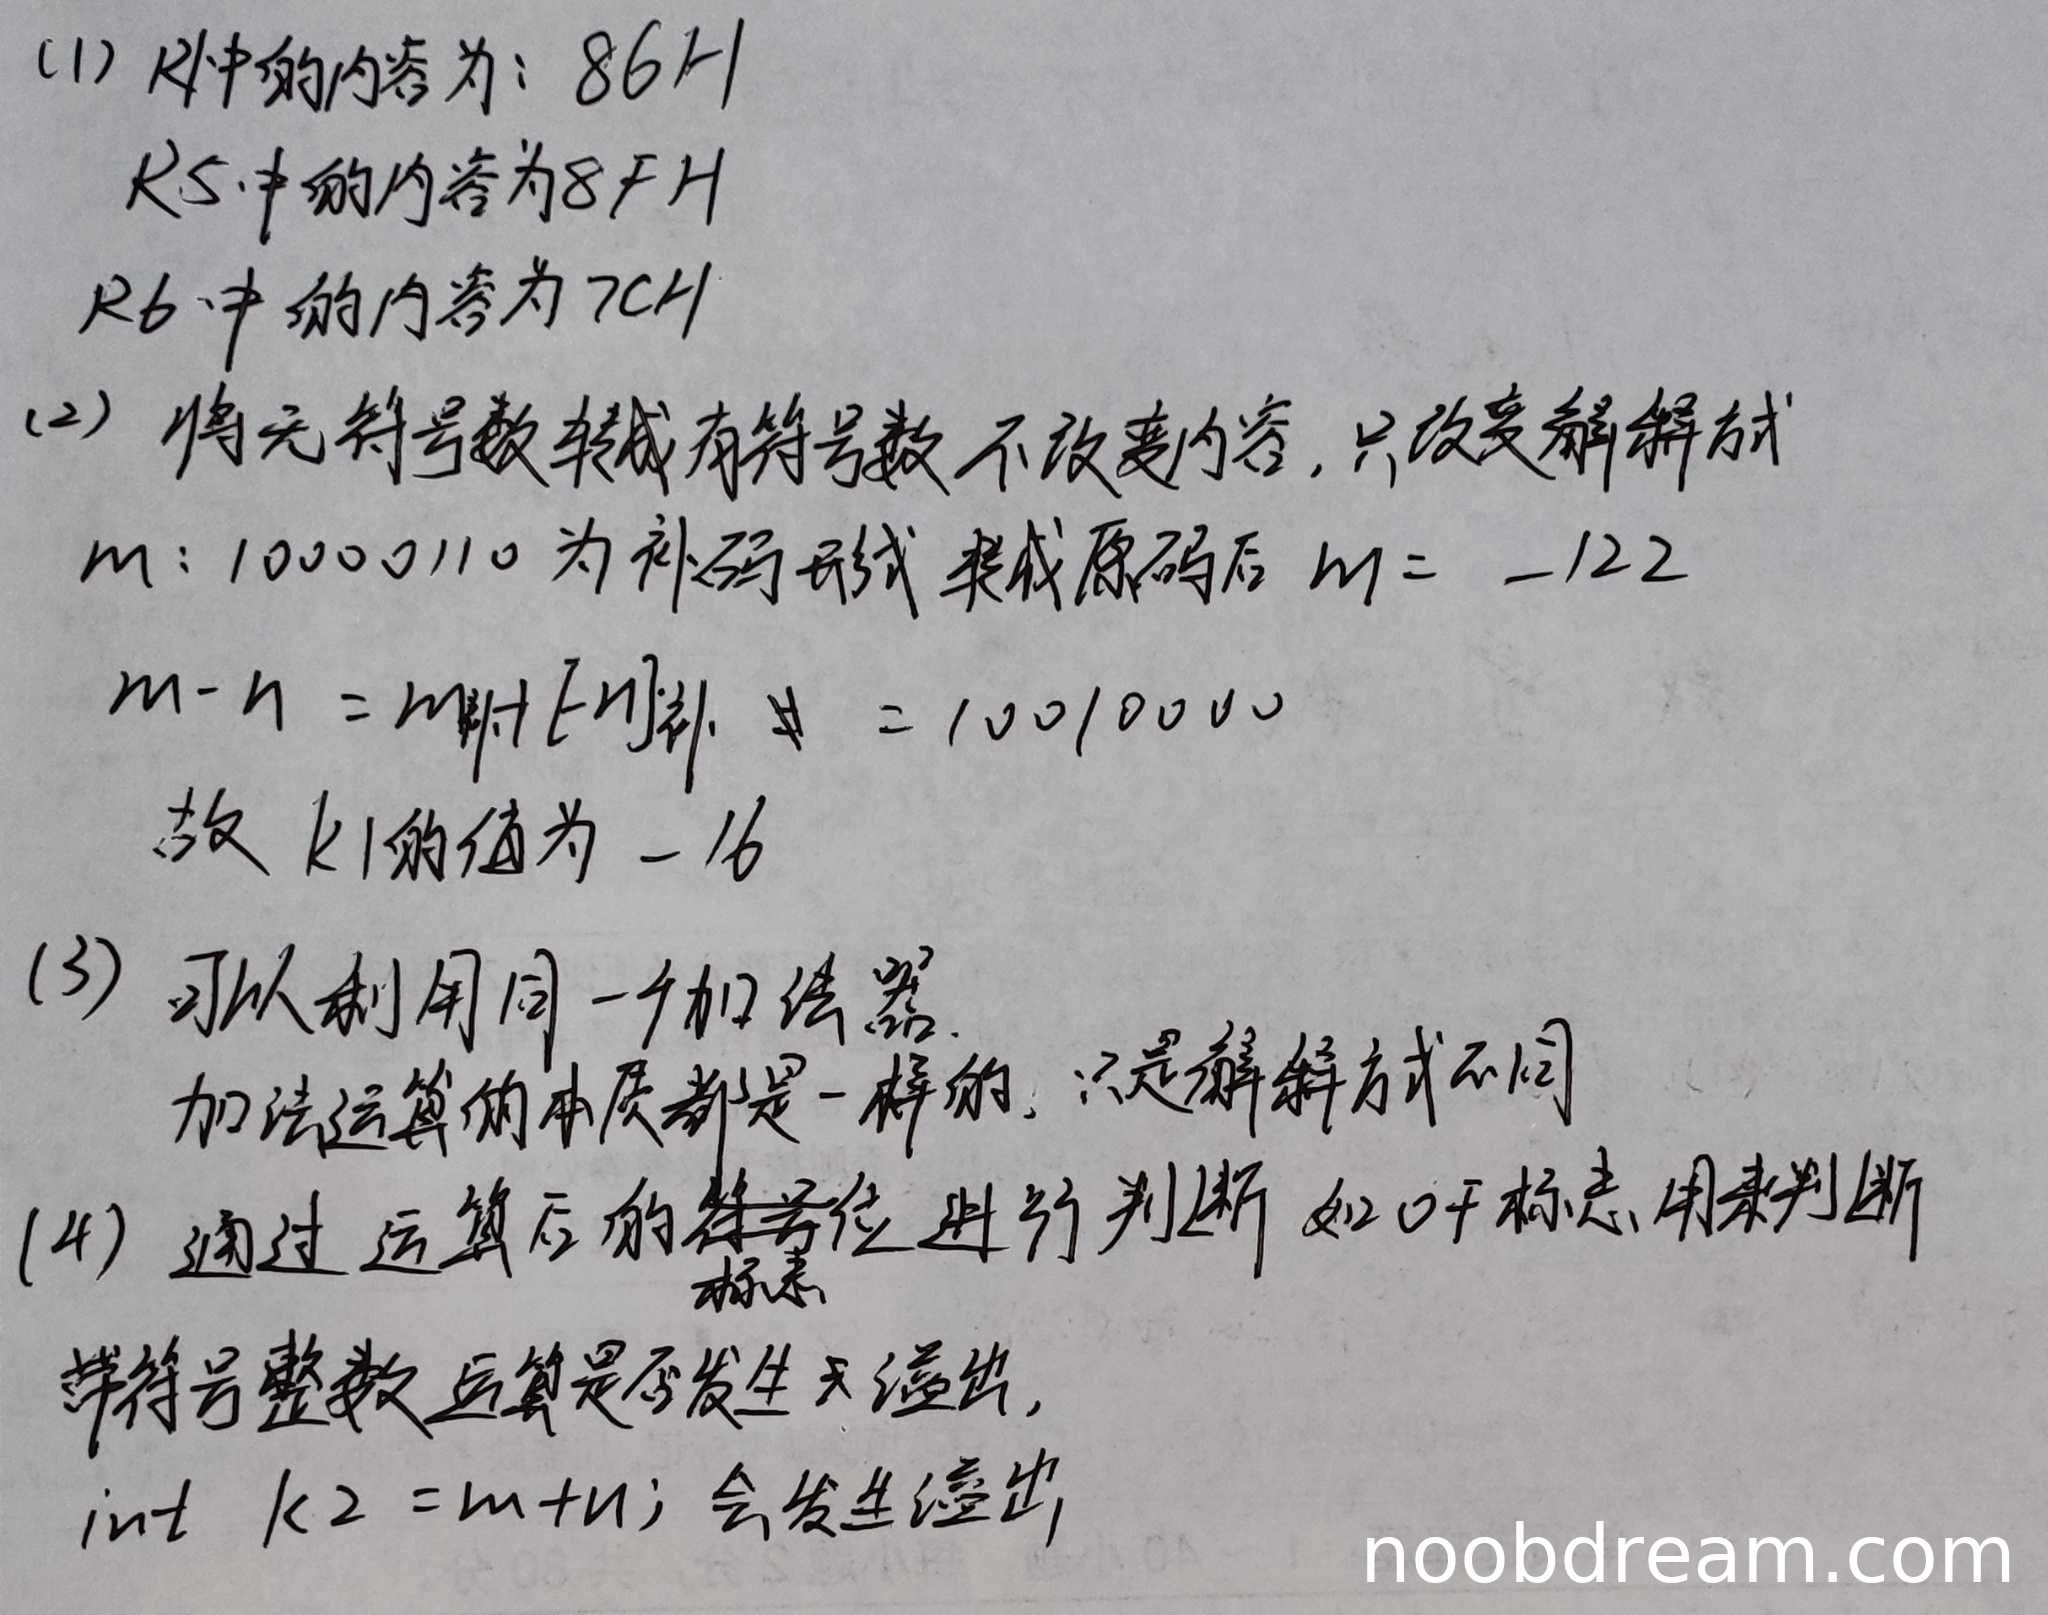 (1) R1中的内容为：86H
R5中的内容为8FH
R6中的内容为7CH
(2) 将无符号数转成有符号数不改变内容，只改变解释方式
m：10000110 为补码形式 转成原码后 m = -122
m-n = m补+[-n]补 = 10010000
故 k1的值为 -16
(3) 可以利用同一个加法器.
加法运算的本质都是一样的，只是解释方式不同
(4) 通过运算后的标志位进行判断 如OF标志用来判断
带符号整数运算是否发生溢出，
int k2 = m+n; 会发生溢出
noobdream.com